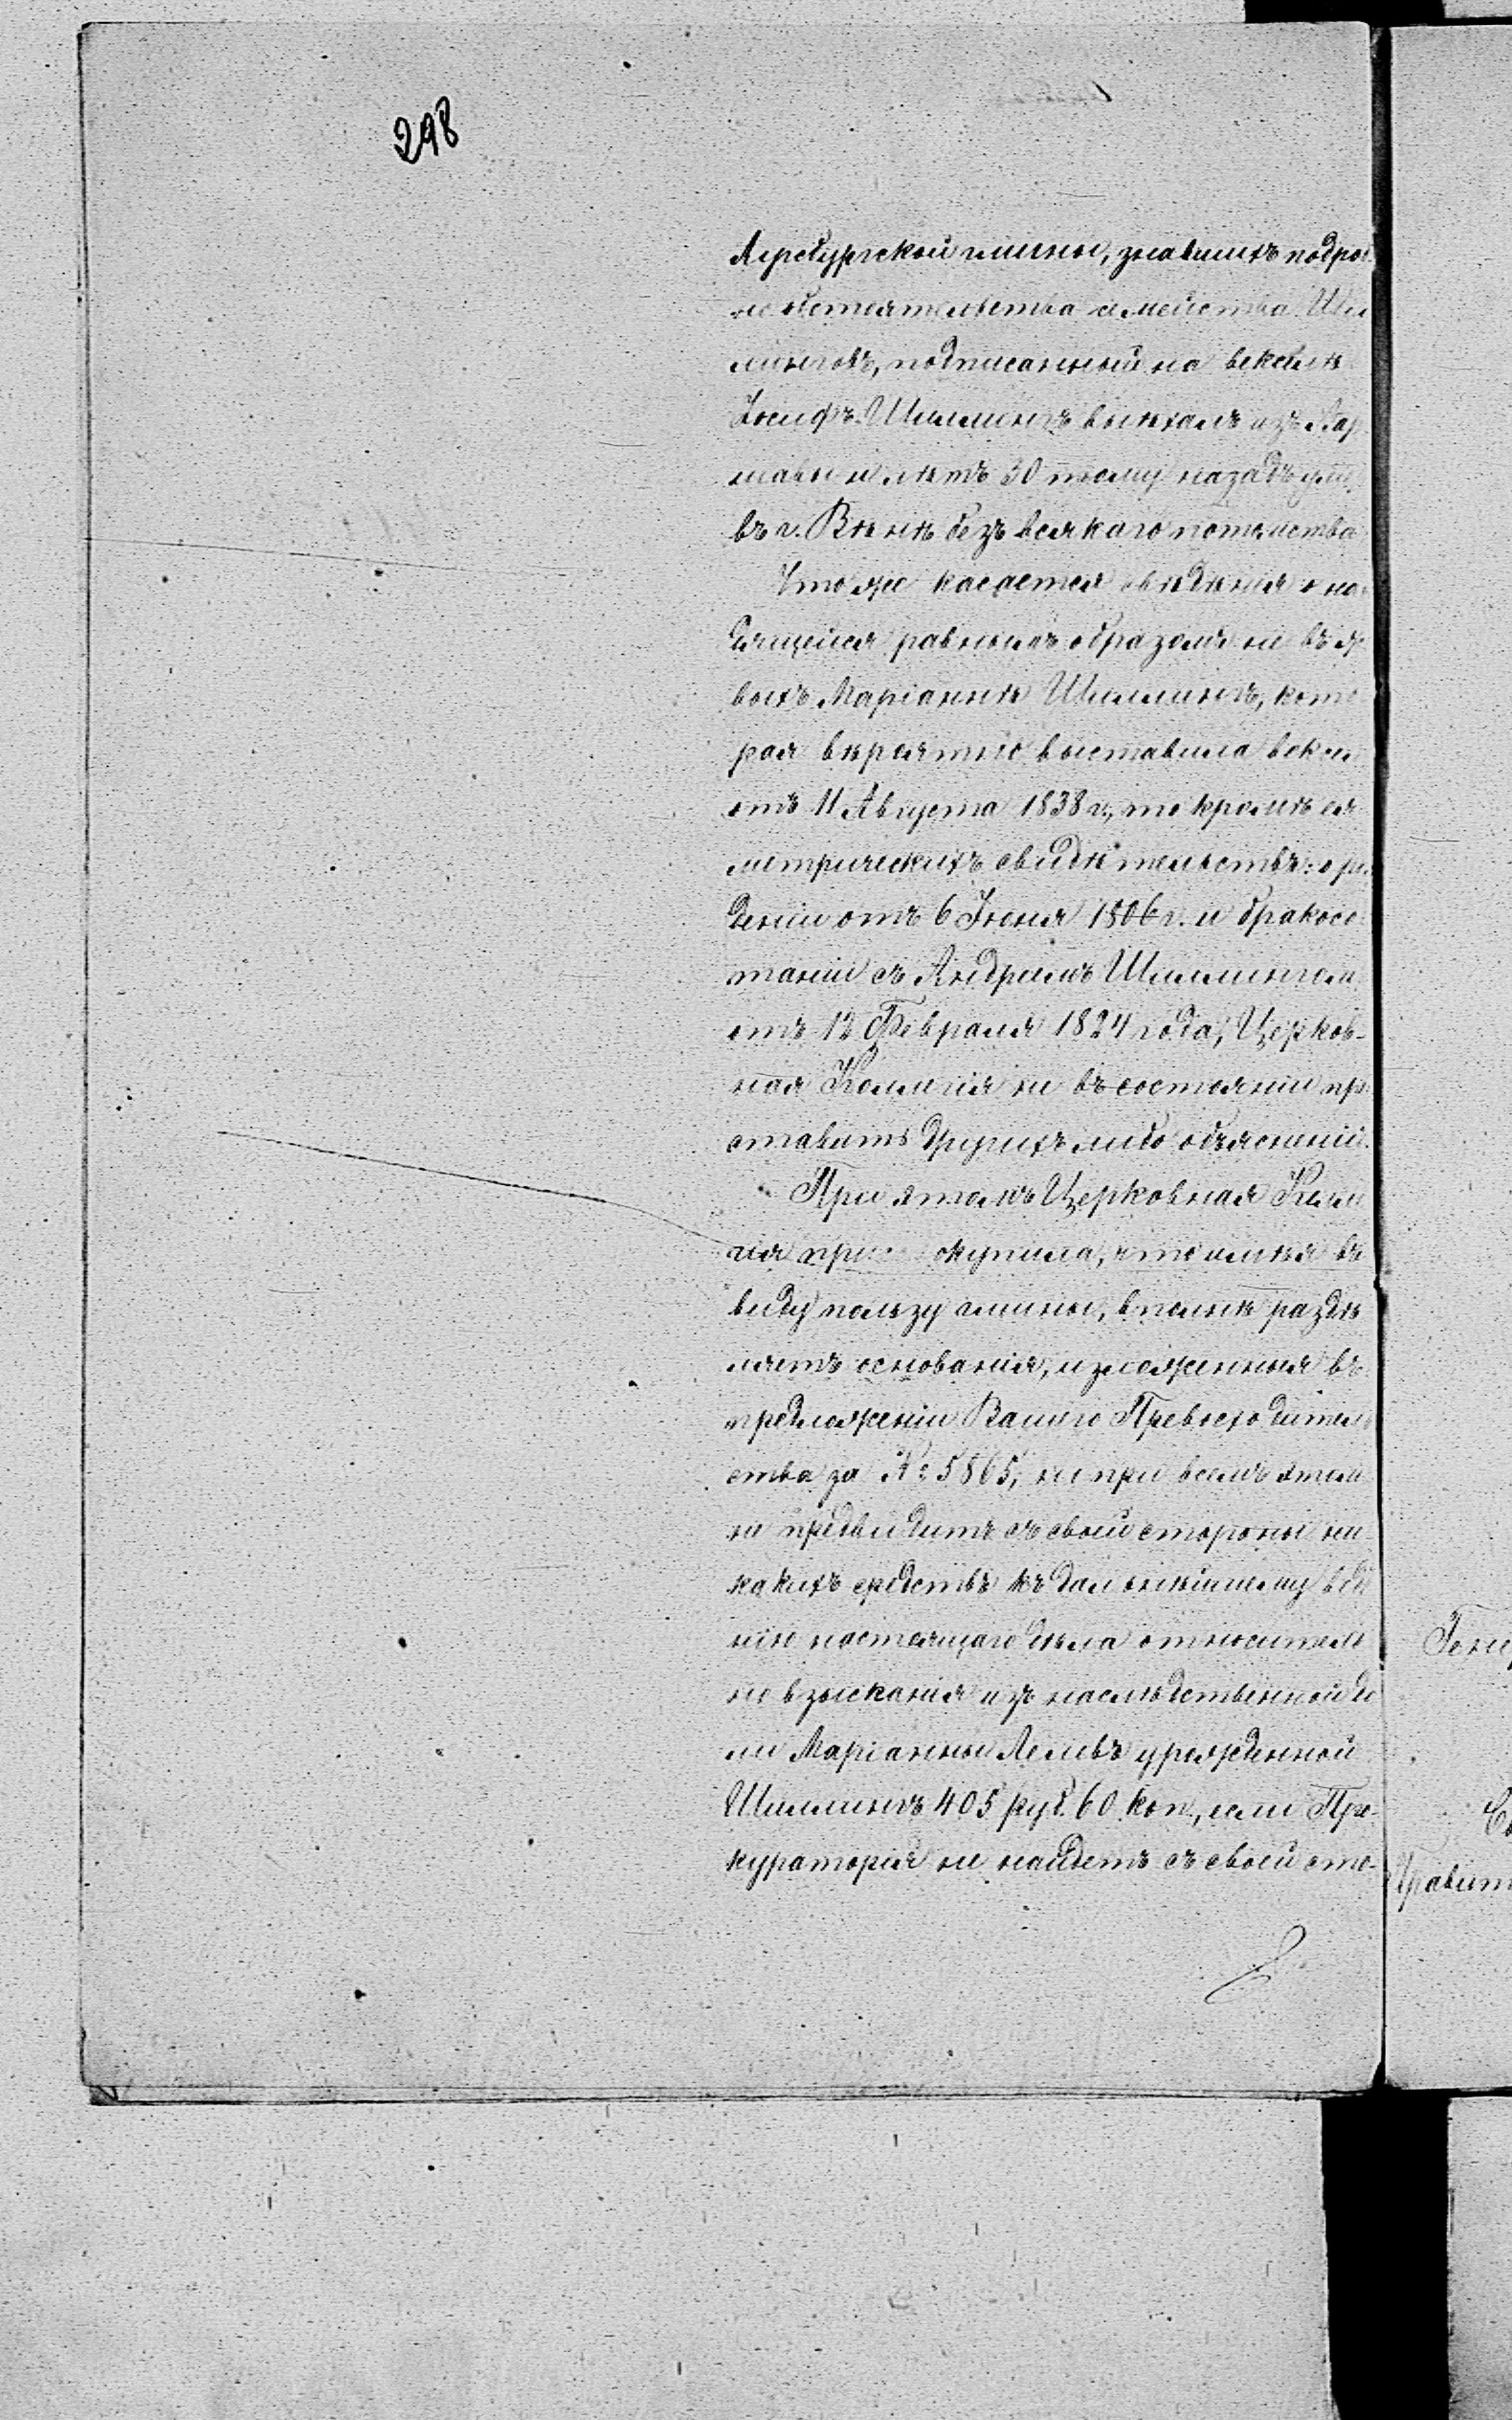 298
Аугсбургской гмины, знавшихъ подроб
но обстоятельства семейства Шил
линговъ, подписанный на векселѣ
Іосифъ Шиллингъ выѣхалъ изъ Вар
шавы и лѣтъ 30 тому назадъ уме
въ г. Вѣнѣ безъ всякаго потомства
Что же касается свѣдѣнія о на
дящейся равнымъ образомъ не въ жи
выхъ Маріаннѣ Шиллингъ, кото
рая вѣроятно выставила вексел
отъ 11 Августа 1838 г., то кромѣ ея
метрическихъ свидѣтельствъ: о ро
деніи отъ 6 Іюня 1806 г. и бракосо
таніи съ Андреемъ Шиллингом
отъ 12 Февраля 1824 года, Церков-
ная Коллегія не въ состояніи пр
ставить другихъ либо объясненій.
При этомъ Церковная Колле
гія при окупила, что имѣя въ
виду пользу гмины, вполнѣ раздѣ
ляетъ основанія, изложенныя въ
предложеніи Вашего Превосходитель
ства за № 5865, но при всемъ этомъ
не предвидитъ съ своей стороны ни
какихъ средствъ къ дальнѣйшему веде
нію настоящаго дѣла относитель
но взысканія изъ наслѣдственной до
ли Маріанны урожденной
Шиллингъ 405 руб. 60 коп., если Про-
кураторія не найдетъ съ своей сто-
Генер
Правит